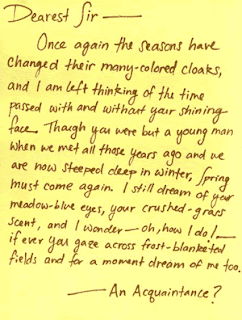 Dearest Sir —
Once again the seasons have
changed their many-colored cloaks,
and I am left thinking of the time
passed with and without your shining
face. Though you were but a young man
when we met all those years ago and we
are now steeped deep in winter, Spring
must come again. I still dream of your
meadow-blue eyes, your crushed-grass
scent, and I wonder — oh, how I do! —
if ever you gaze across frost-blanketed
fields and for a moment dream of me too.
— An Acquaintance?